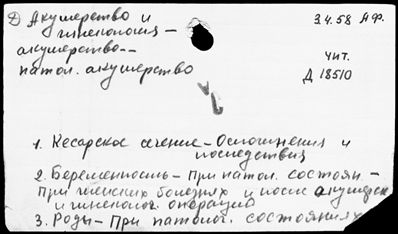 Д) Акушерство и
гинекология —
акушерство--
патол. акушерство
3.4.58 АФ.
чит.
Д 18510
1. Кесарское сечение — Осложнения и
последствия
2. Беременность — При патол. состоян —
При женских болезнях и после акушерск
и гинеколог. операций
3. Роды — При патолог. состояниях